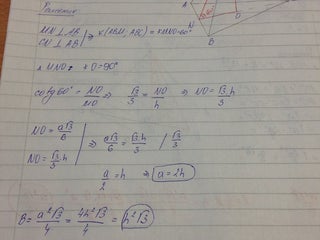 Решение
A
N 60° O
B
MN ⊥ AB
CN ⊥ AB | ⇒ ∢(ABM; ABC) = ∢MNO = 60°
△ MNO: ∢O = 90°
cotg 60° = NO/MO ⇒ √3/3 = NO/h ⇒ NO = √3.h/3
NO = a√3/6
NO = √3/3 h | ⇒ a√3/6 = √3.h/3 / √3/3
a/2 = h ⇒ a = 2h
B = a²√3/4 = 4h²√3/4 = h²√3